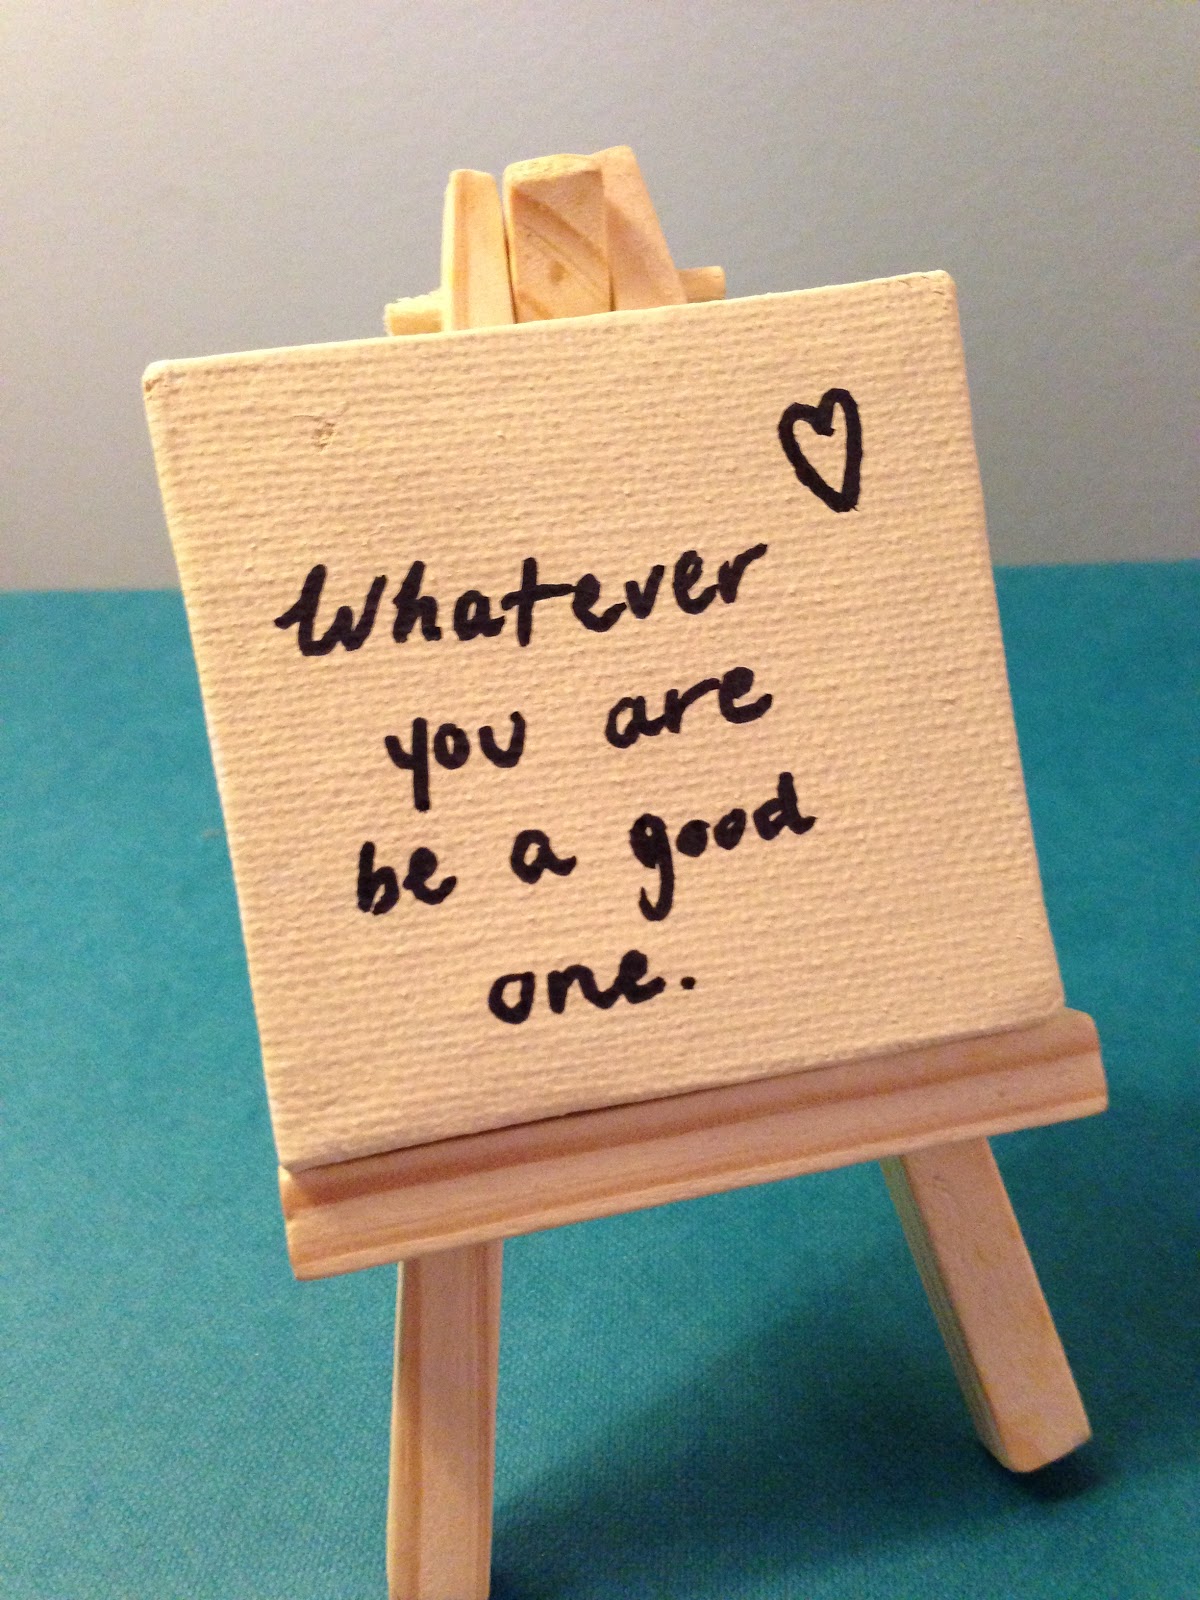 Whatever
you are
be a good
one.